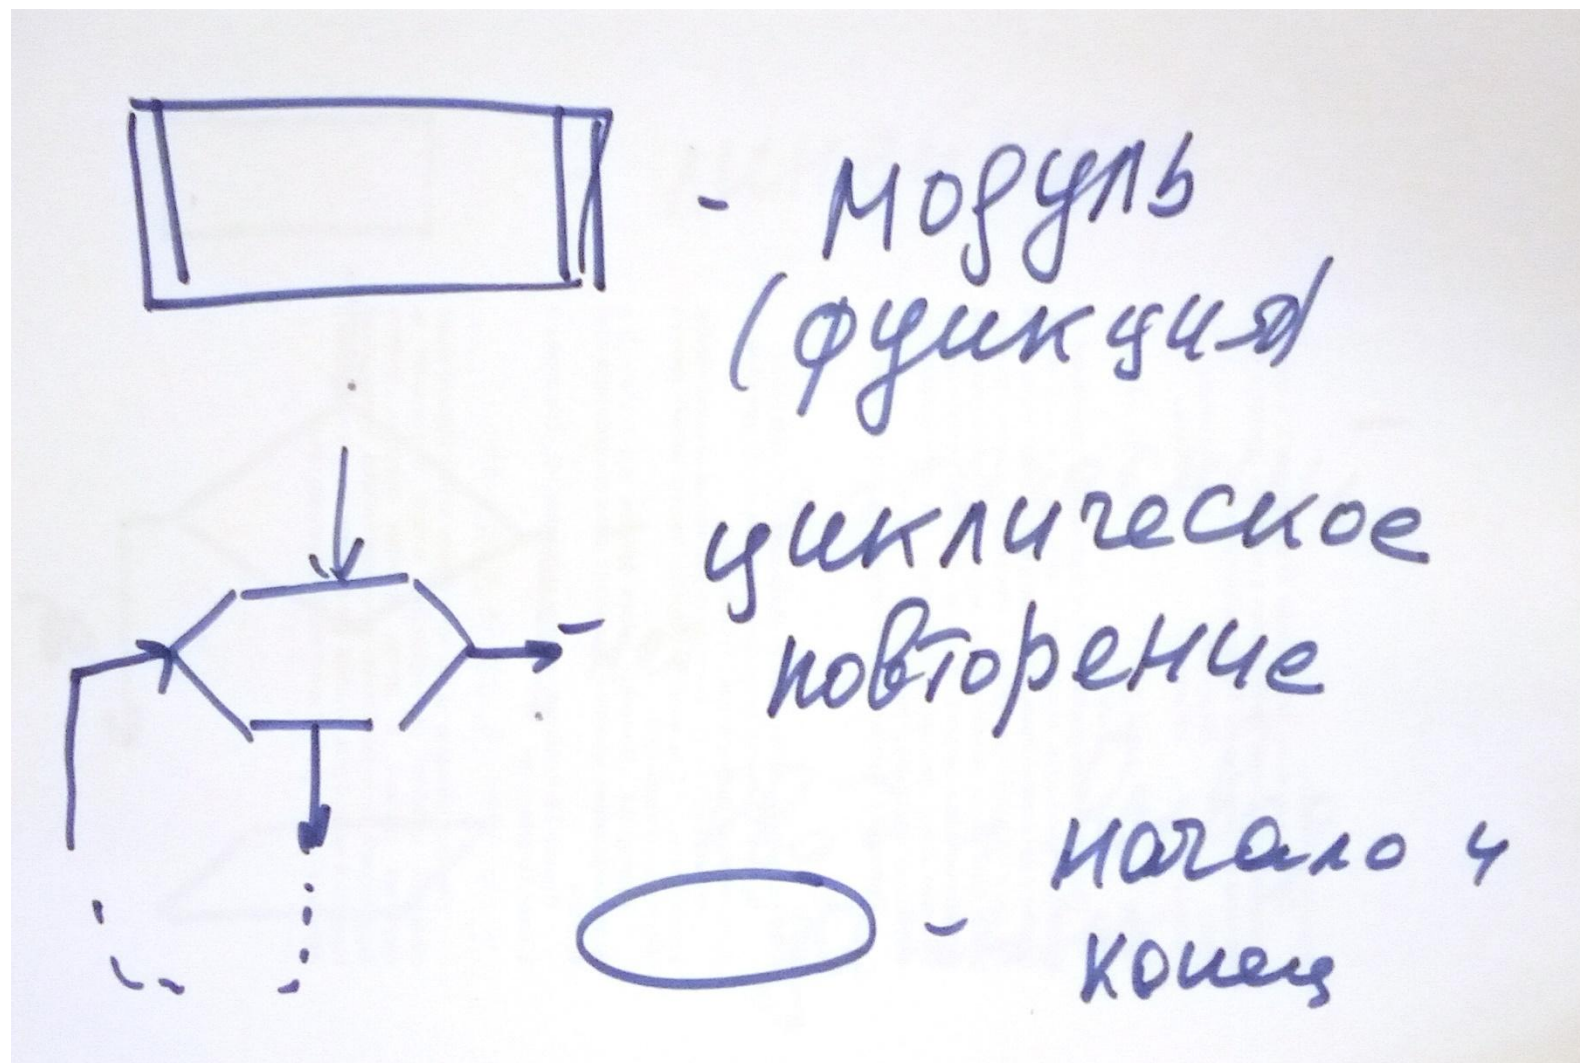 - модуль
(функция)
- циклическое
повторение
- начало и
конец